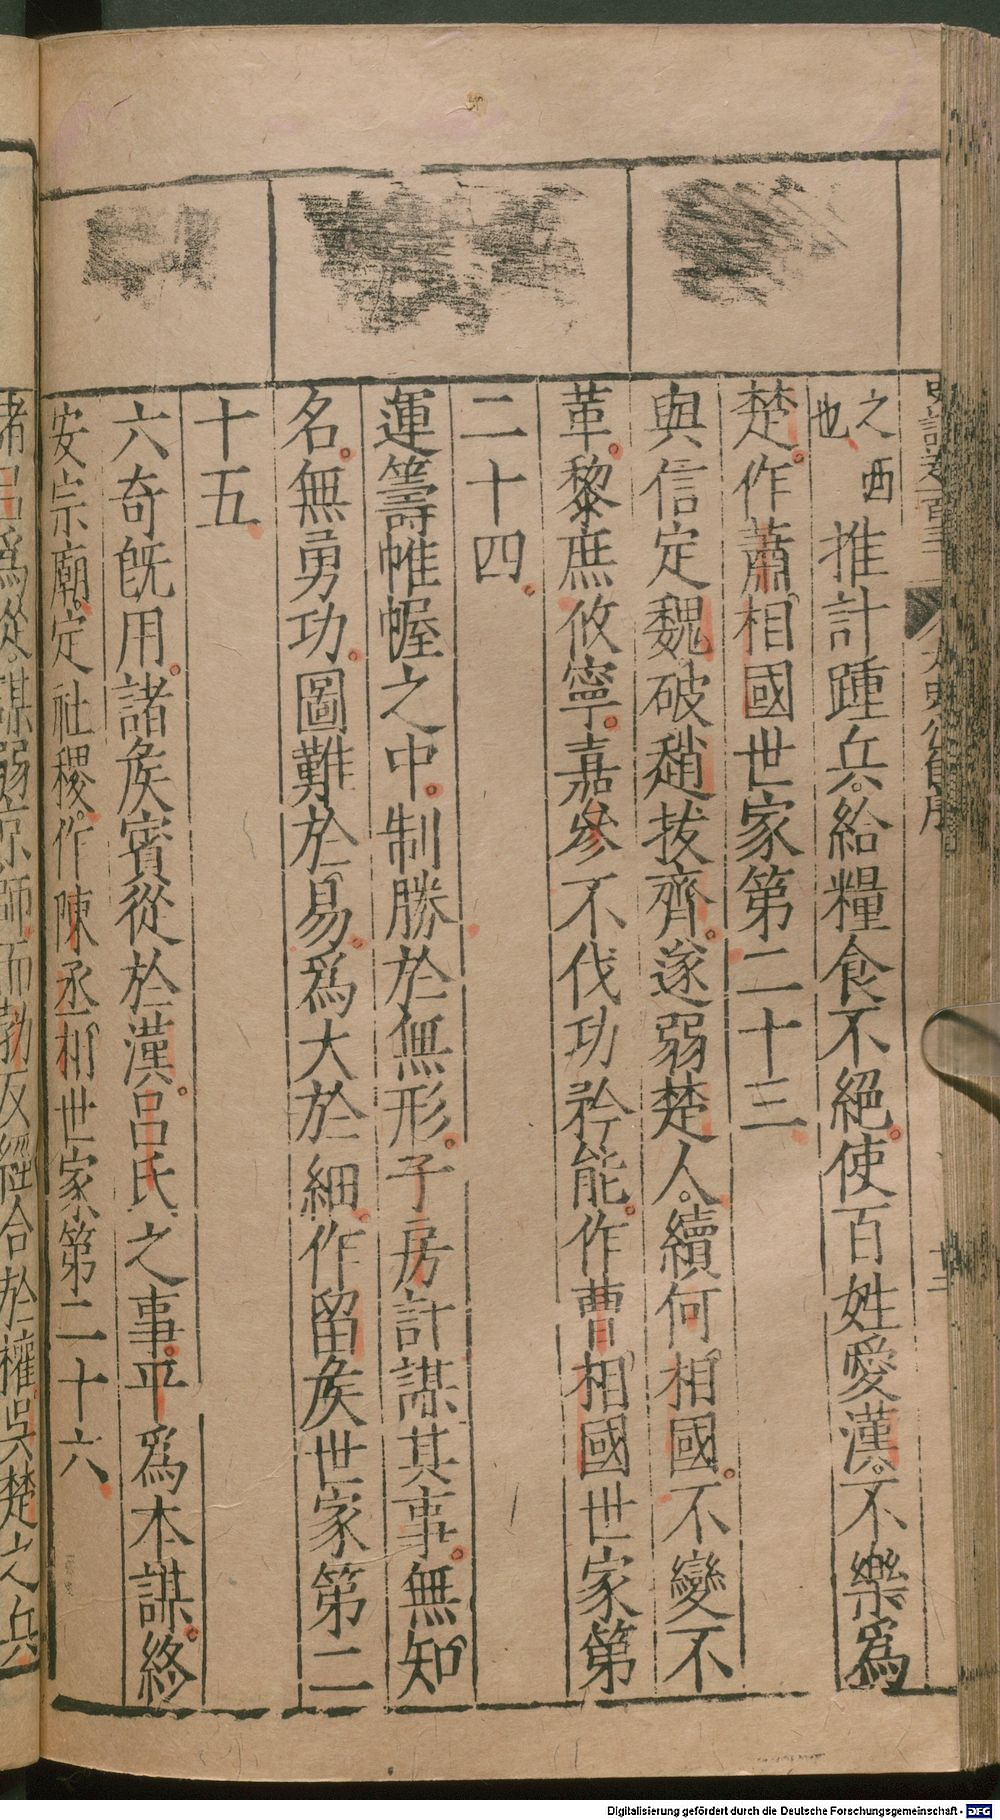 之西
也
推計踵兵給糧食不絕使百姓愛漢不樂爲
楚作蕭相國世家第二十三
與信定魏破趙拔齊遂弱楚人續何相國不變不
革黎庶攸寧嘉參不伐功矜能作曹相國世家第
二十四
運籌帷幄之中制勝於無形子房計謀其事無知
名無勇功圖難於易爲大於細作留矦世家第二
十五
六奇旣用諸矦賓從於漢呂氏之事平爲本謀終
安宗廟定社稷作陳丞相世家第二十六
諸呂爲從謀弱京師而勃反經合於權吳楚之兵
Digitalisierung gefördert durch die Deutsche Forschungsgemeinschaft - DFG